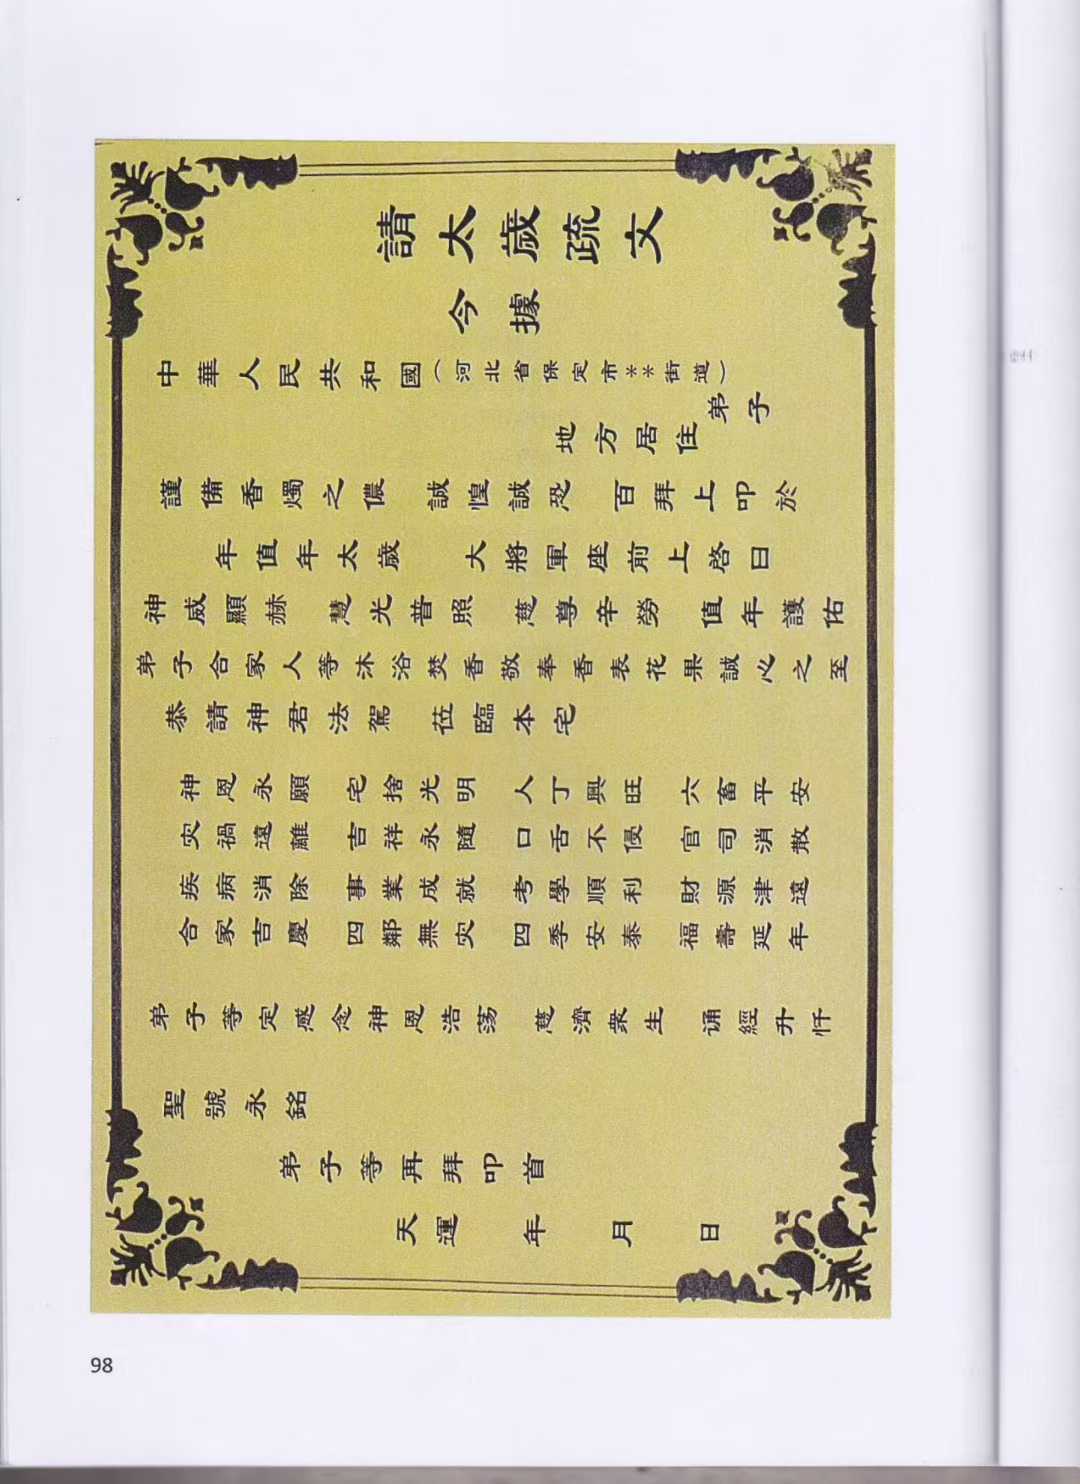 請太歲疏文
今據
中華人民共和國（河北省保定市**街道）
地方居住 弟子
謹備香燭之儂 誠惶誠恐 百拜上叩於
年值年太歲 大將軍座前上啓曰
神威顯赫 慧光普照 慈尊辛勞 值年護佑
弟子合家人等沐浴焚香敬奉香表花果誠心之至
恭請神君法駕 莅臨本宅
神恩永願 宅捨光明 人丁興旺 六畜平安
灾禍遠離 吉祥永隨 口舌不侵 官司消散
疾病消除 事業成就 考學順利 財源津遠
合家吉慶 四鄰無灾 四季安泰 福壽延年
弟子等定感念神恩浩荡 慈濟衆生 诵經升忏
聖號永銘
弟子等再拜叩首
天運 年 月 日
98